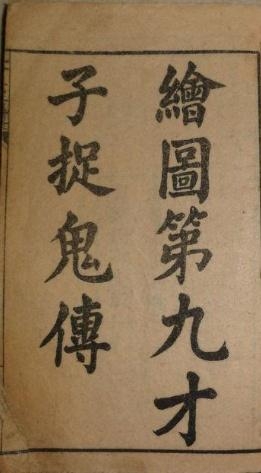 繪圖第九才
子捉鬼傳